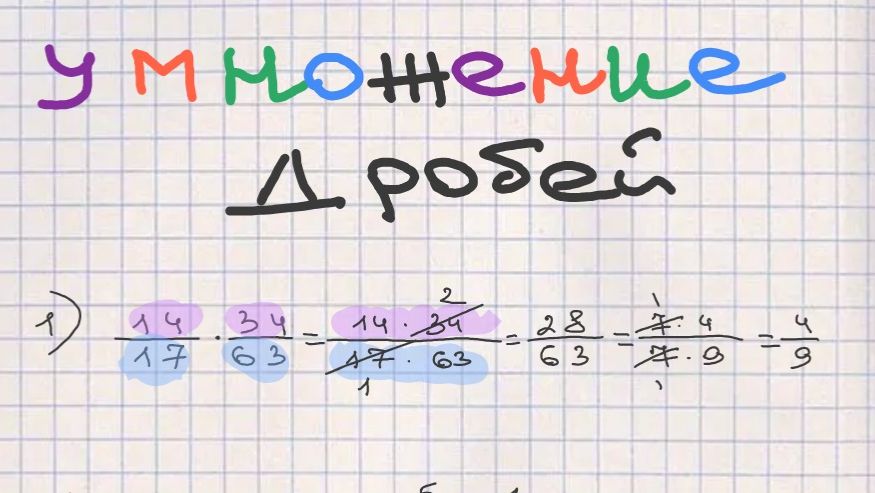 умножение
Дробей
1) 14/17 · 34/63 = 14 · 34 2/17 1 · 63 = 28/63 = 7 1 · 4/7 1 · 9 = 4/9